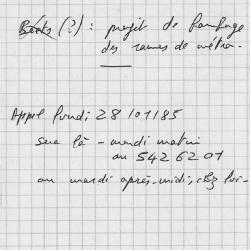 (?) : projet de
des rames de métro.
Appel lundi 28/01/85
sera là - mardi matin
au 542 62 01
ou mardi après-midi, chez lui -